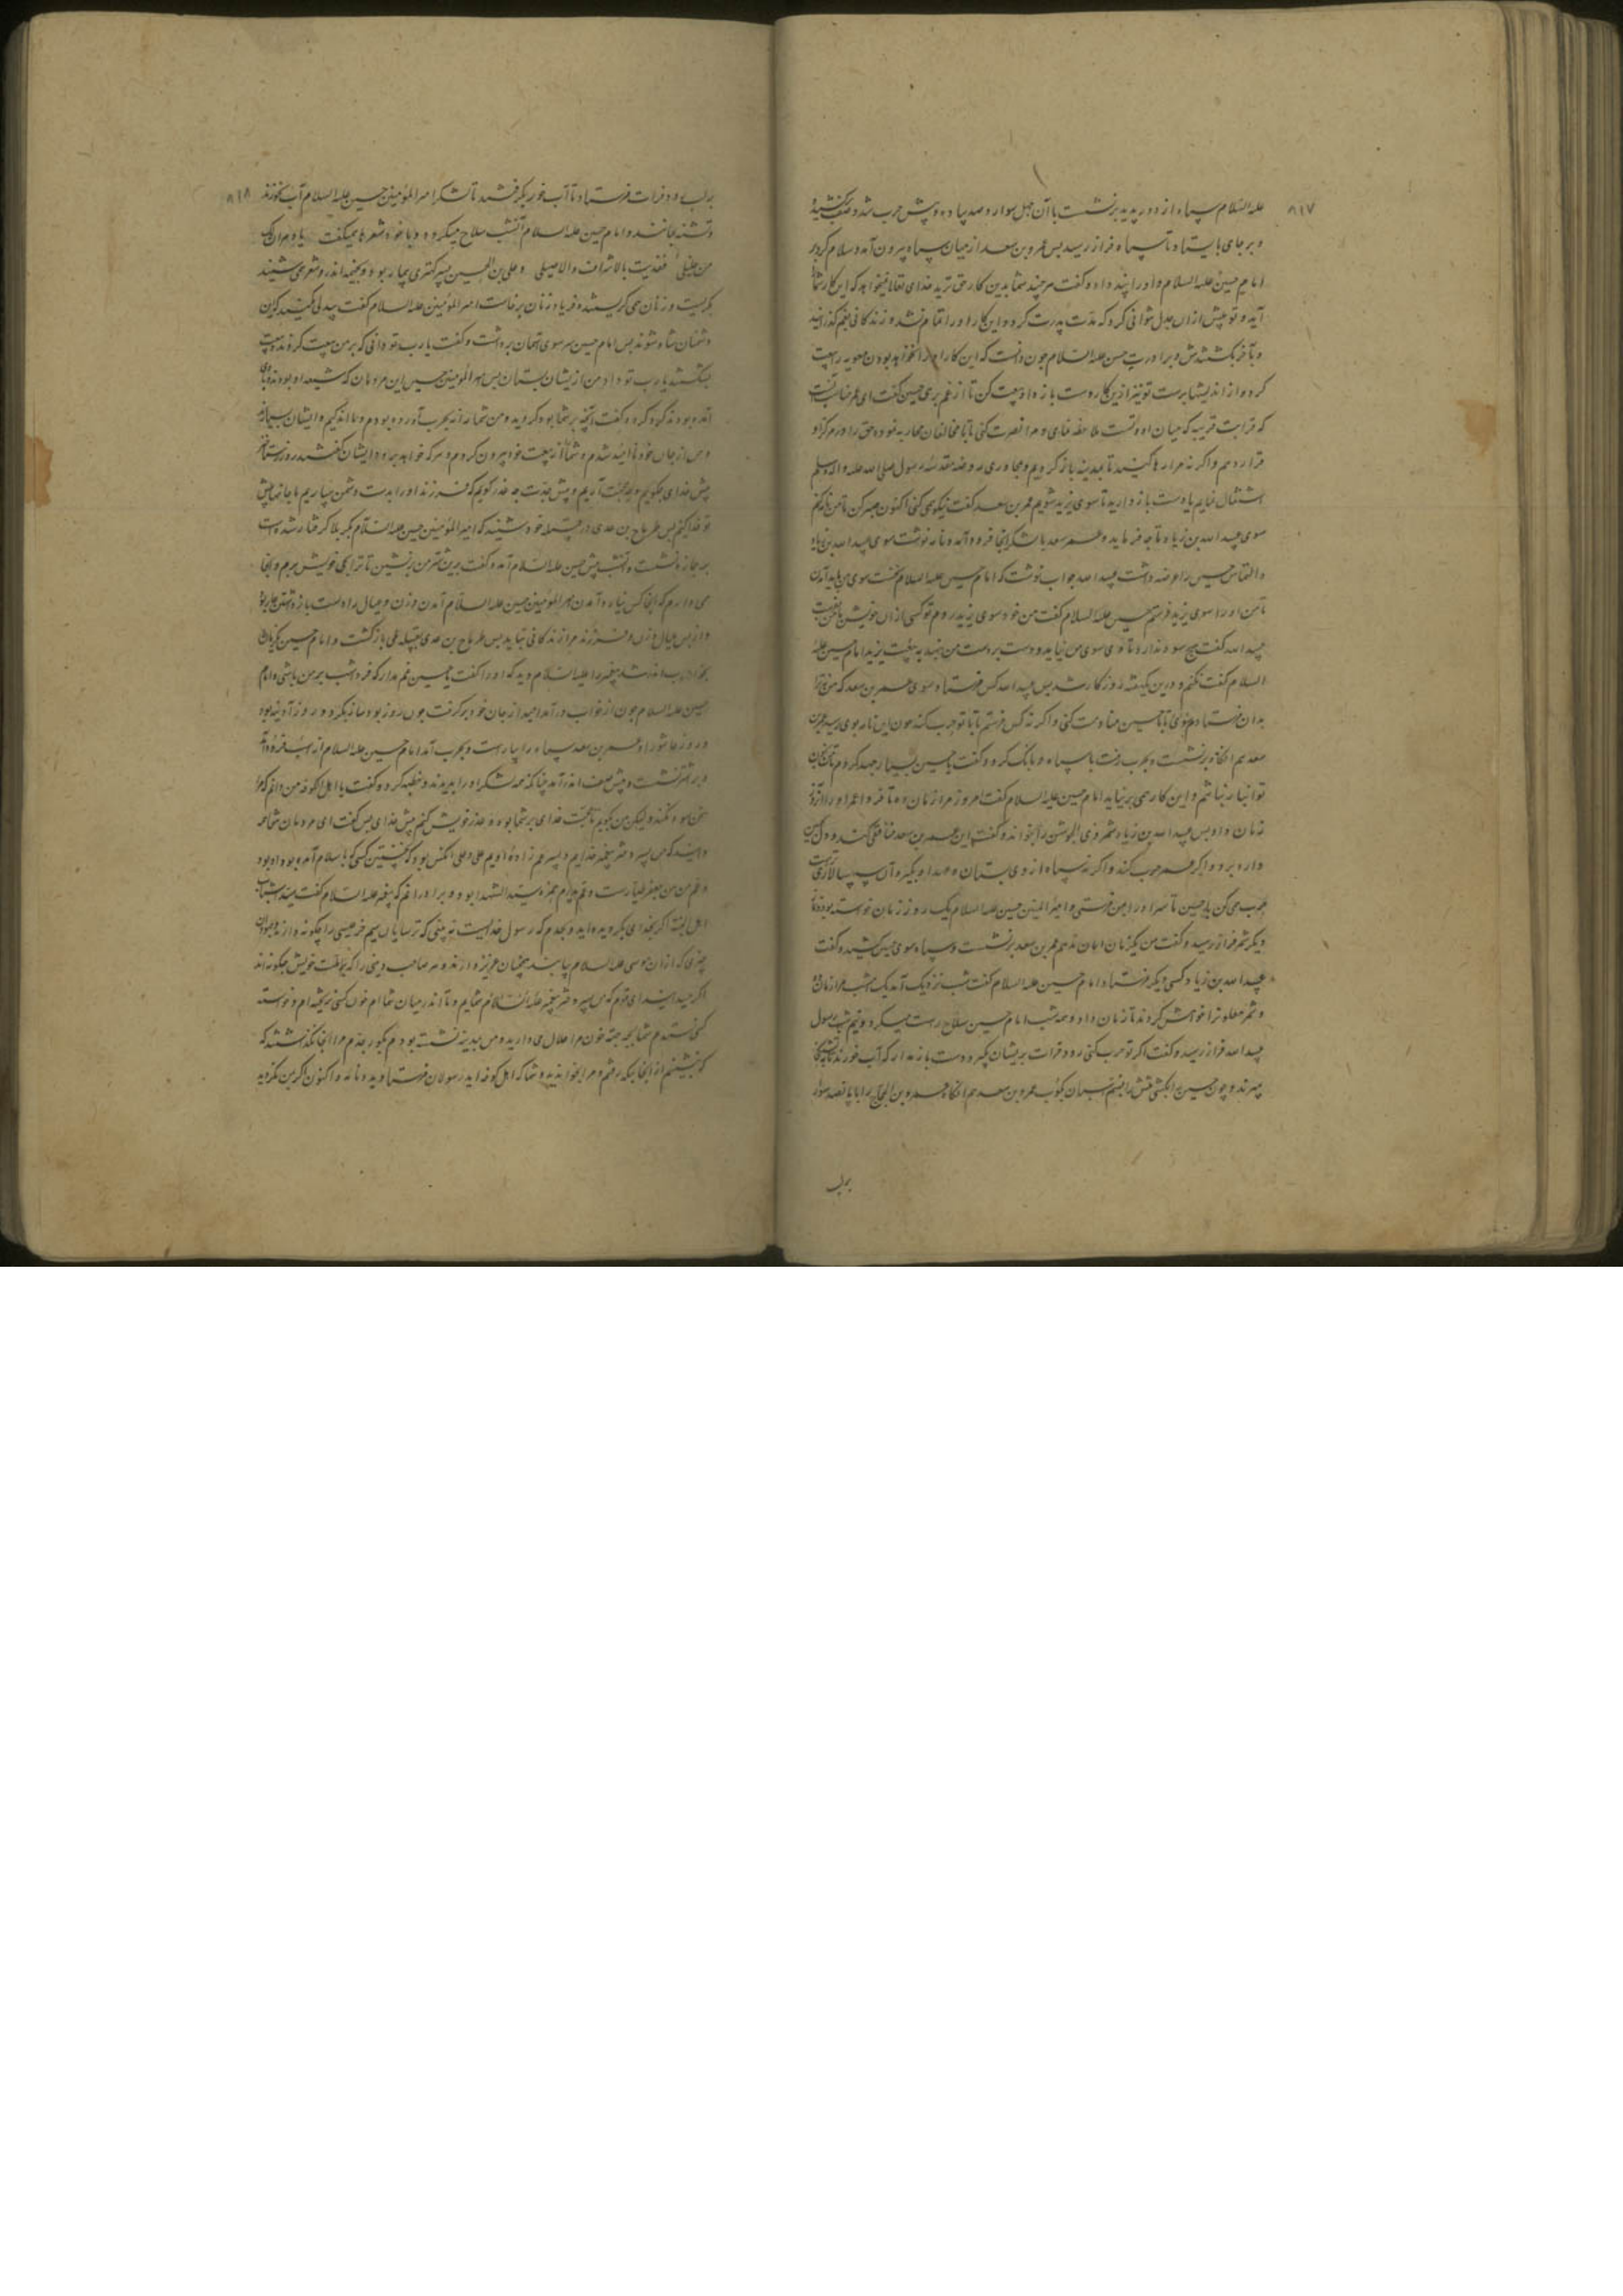 ۸۱۷
علیه السّلام سپاه از دور پدید برنشست با آن چهل سوار و صد پیاده و پیش حرب شد و صف برکشید
و بر جای بایستاد تا سپاه فراز رسید بس عمرو بن سعد از میان سپاه بیرون آمد و سلام کرد بر
امام حسین علیه السلام و او را پند داد و گفت هر چند شما بدین کار حق ترید خدای تعالی نمیخواهد که این کار شما
آید و تو پیش از آن جدل نتوانی کرد که پدرت کرد و این کار او را تمام نشد و زندکانی بغم گذرانید
و بآخر بکشتندش و برادرت حسن علیه السّلام چون دانست که این کار او را نخواهد بودن معویه را بیعت
کرد و از اندیشها برست تو نیز ازین کار دست بازدار و بیعت کن تا از غم برهی حسین گفت ای عمر
که قرابت قریبه که میان ما و تست ملاحظه نمایی و مرا نصرت کنی تا با مخالفان محاربه نموده حق را در مرکز او
قرار دهم و اگر نه مرا رها کنید تا بمدینه باز کردیم و مجاوری روضه مقدسه رسول صلی الله علیه و اله وسلم
اشتغال نمایم یا دست باز دارید تا سوی یزید شویم عمر بن سعد گفت نیکو می کنی اکنون صبر کن تا من نامه کنم
سوی عبید الله بن زیاد تا چه فرماید و عمر سعد با لشکر آنجا فرود آمد و نامه نوشت سوی عبید الله بن زیاد
و التماس حسین را عرضه داشت عبید الله جواب نوشت که امام حسین علیه السلام نخست سوی من باید آمدن
تا من او را سوی یزید فرستم حسین علیه السلام گفت من خود سوی یزید روم تو کسی از آن خویش با من بفرست
عبید الله گفت هیچ سود ندارد تا سوی من نیاید و دست بر دست من ننهد به بیعت یزید امام حسین علیه
السلام گفت نکنم و درین یکهفته روزکار شد بس عبید الله کس فرستاد سوی عمر بن سعد که من ترا
بدان فرستادم تا با حسین منادمت کنی و اگر نه کس فرستم تا با تو حرب کند چون این نامه بوی رسید عمر بن
سعد هم آنکاه برنشست و بحرب رفت با سپاه و بانک کرد و گفت یا حسین بسیار جهد کردم تا
توانباز نباشم و این کار همی برنیاید امام حسین علیه السلام گفت امروز مرا زمان ده تا فردا عمر او را
زمان داد بس عبید الله بن زیاد شمر ذی الجوشن را بخواند و گفت این عمر بن سعد منافقی کند
دارد برو و اگر عمر حرب کند و اگر نه سپاه از وی بستان و او را بگیر و آن سپسالاری
حرب می کن با حسین تا سر او را بمن فرستی و امیر المؤمنین حسین علیه السلام یک روز زمان خواسته بود
دیکر شمر فراز رسید و گفت من یکزمان امان ندهم عمر بن سعد برنشست و سپاه سوی حسین کشید و گفت
عبید الله بن زیاد کسی دیگر فرستاد و امام حسین علیه السلام گفت شب نزدیک آمد یک شب مرا زمان ده
و شمر ملعون را خواهش کردند تا زمان داد و همه شب امام حسین سلاح راست میکرد و نیم شب رسول
عبید الله فراز رسید و گفت اگر تو حرب کنی رود فرات بریشان بگیر و دست بازمدار که آب خورند
میرند و چون حسین را بکشتی
برلب
۸۱۸
برلب رود فرات فرستاد تا آب خور بگرفتند تا لشکر امیر المؤمنین حسین علیه السلام آب نخورند
و تشنه بمانند و امام حسین علیه السلام آنشب سلاح میکرد و با خود شعرها همیگفت یا دهر اف لک
من خلیل فقدیت بالاشراف والاصیل و علی بن الحسین پسر کهتری بیمار بود و بخیمه اندر و شعر می شنید
بگریست و زنان همی کریستند و فریاد زنان برخاست امیر المؤمنین علیه السلام گفت بیدلی مکنید کاین
دشمنان شاد شوند بس امام حسین سر سوی آسمان برداشت و گفت یا رب تو دانی که بر من بیعت کردند و بیعت
بشکستند یا رب تو داد من ازیشان بستان بس امیر المؤمنین حسین این مردمان که شیعه او بودند و با وی
اندر بودند گرد کرد و گفت آنچه بر شما بود کردید و من شما را نه بحرب آورده بودم و ما اندکیم و ایشان بسیارند
و من از جان خود ناامید شدم و شما را از بیعت خود بیرون کردم و هر که خواهد برود ایشان گفتند روز رستخیز
پیش خدای چکوییم و چه حجت آریم و پیش جدّت چه عذر کوییم که فرزند او را بدست دشمن سپاریم ما جانها پیش
تو فدا کنیم بس طرماح بن عدی در قبیله خود شنید که امیر المؤمنین حسین علیه السّلام بکربلا گرفتار شده است
بر جمازه نشست و بشب پیش حسین علیه السّلام آمد و گفت برین شتر من برنشین تا ترا بحی خویش برم و آنجا
می دارم که آنجا کس نیارد آمدن امیر المؤمنین حسین علیه السّلام گفت آمدن و زن و عیال را دست بازداشتن
و از پس عیال و زن و فرزند مرا زندکانی نباید بس طرماح بن عدی بقبیله طی باز گشت و امام حسین یکزمان
بخواب اندر شد پیغمبر را علیه السّلام دید که او را گفت یا حسین غم مدار که فردا شب بر من باشی و امام
حسین علیه السلام چون از خواب درآمد امید از جان خود برگرفت چون روز بود ساز بکرد و روز آدینه بود
و روز عاشورا و عمر بن سعد سپاه را بیاراست و بحرب آمد امام حسین علیه السلام از اسب فرود آمد
و بر اشتر نشست و پیش صف اندر آمد چنانکه همه لشکر او را بدیدند و خطبه کرد و گفت یا اهل الکوفه من دانم که مرا
سخن سود نکند ولیکن من بکویم تا حجّت خدای بر شما بود و عذر خویش کنم پیش خدای بس گفت ای مردمان شما همه
دانید که من پسر دختر پیغمبر خدایم و پسر عم زاده اویم علی و علی آنکس بود که نخستین کسی که باسلام آمد وی بود
و عم من جعفر طیارست و عم پدرم حمزه سید الشهدا بود و برادرانم که پیغمبر علیه السّلام گفت سید شباب
اهل الجنة اگر بخدای بگرویده اید و بجدم که رسول خدایست نه بینی که ترسایان سم خر عیسی را چکونه دارند
چیزی که از آن موسی علیه السلام بیابند همچنان عزیز دارند و هر صاحب دینی را که بر ملت خویش چکونه اند
اگر چنین ای قوم که من پسر دختر پیغمبر علیه السّلام شمایم و تا اندر میان شما ام خون کسی نریخته ام و خواسته
کسی نستدم شما بچه حجت خون مرا حلال می دارید و من بمدینه نشسته بودم بگور جدم مرا آنجا نگذاشتند که
بنشینم از آنجا بمکه رفتم و مرا بخواندید و شما که اهل کوفه اید رسولان فرستادید و نامه و اکنون